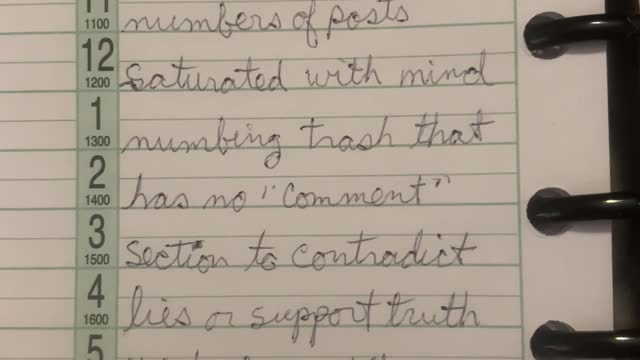 11
1100 numbers of posts
12
1200 saturated with mind
1
1300 numbing trash that
2
1400 has no "comment"
3
1500 section to contradict
4
1600 lies or support truth
5